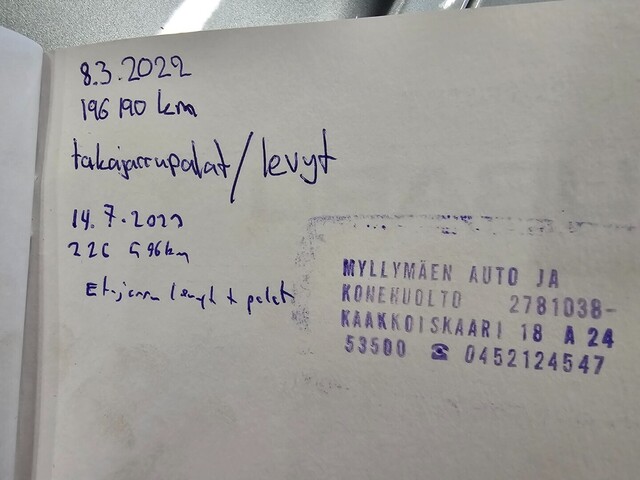 8.3.2022
196 190 km
takajarrupalat/levyt
14.7.2023
226 696km
Etujarru levyt + palat
MYLLYMÄEN AUTO JA
KONEHUOLTO 2781038-
KAAKKOISKAARI 18 A 24
53500 ☎ 0452124547